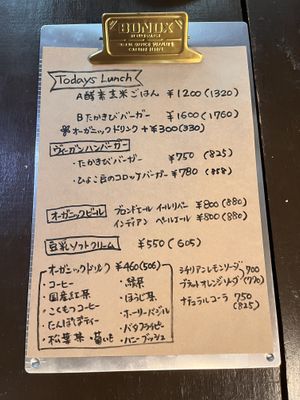 BONOX
Todays Lunch
A 酵素玄米ごはん ¥1200(1320)
B たかきびバーガー ¥1600(1760)
オーガニックドリンク +¥300(330)
ヴィーガンハンバーガー
・たかきびバーガー ¥750 (825)
・ひよこ豆のコロッケバーガー ¥780 (858)
オーガニックビール
ブロンドエール イールリバー ¥800(880)
インディアン ペールエール ¥800(880)
豆乳ソフトクリーム ¥550(605)
オーガニックドリンク ¥460(506)
・コーヒー
・国産紅茶
・こくもつコーヒー
・たんぽぽティー
・松葉茶 ・菊いも
・緑茶
・ほうじ茶
・ホーリーバジル
・バタフライピー
・ハニーブッシュ
シチリアンレモンソーダ 700
ブラッドオレンジソーダ (770)
ナチュラルコーラ 750
(825)